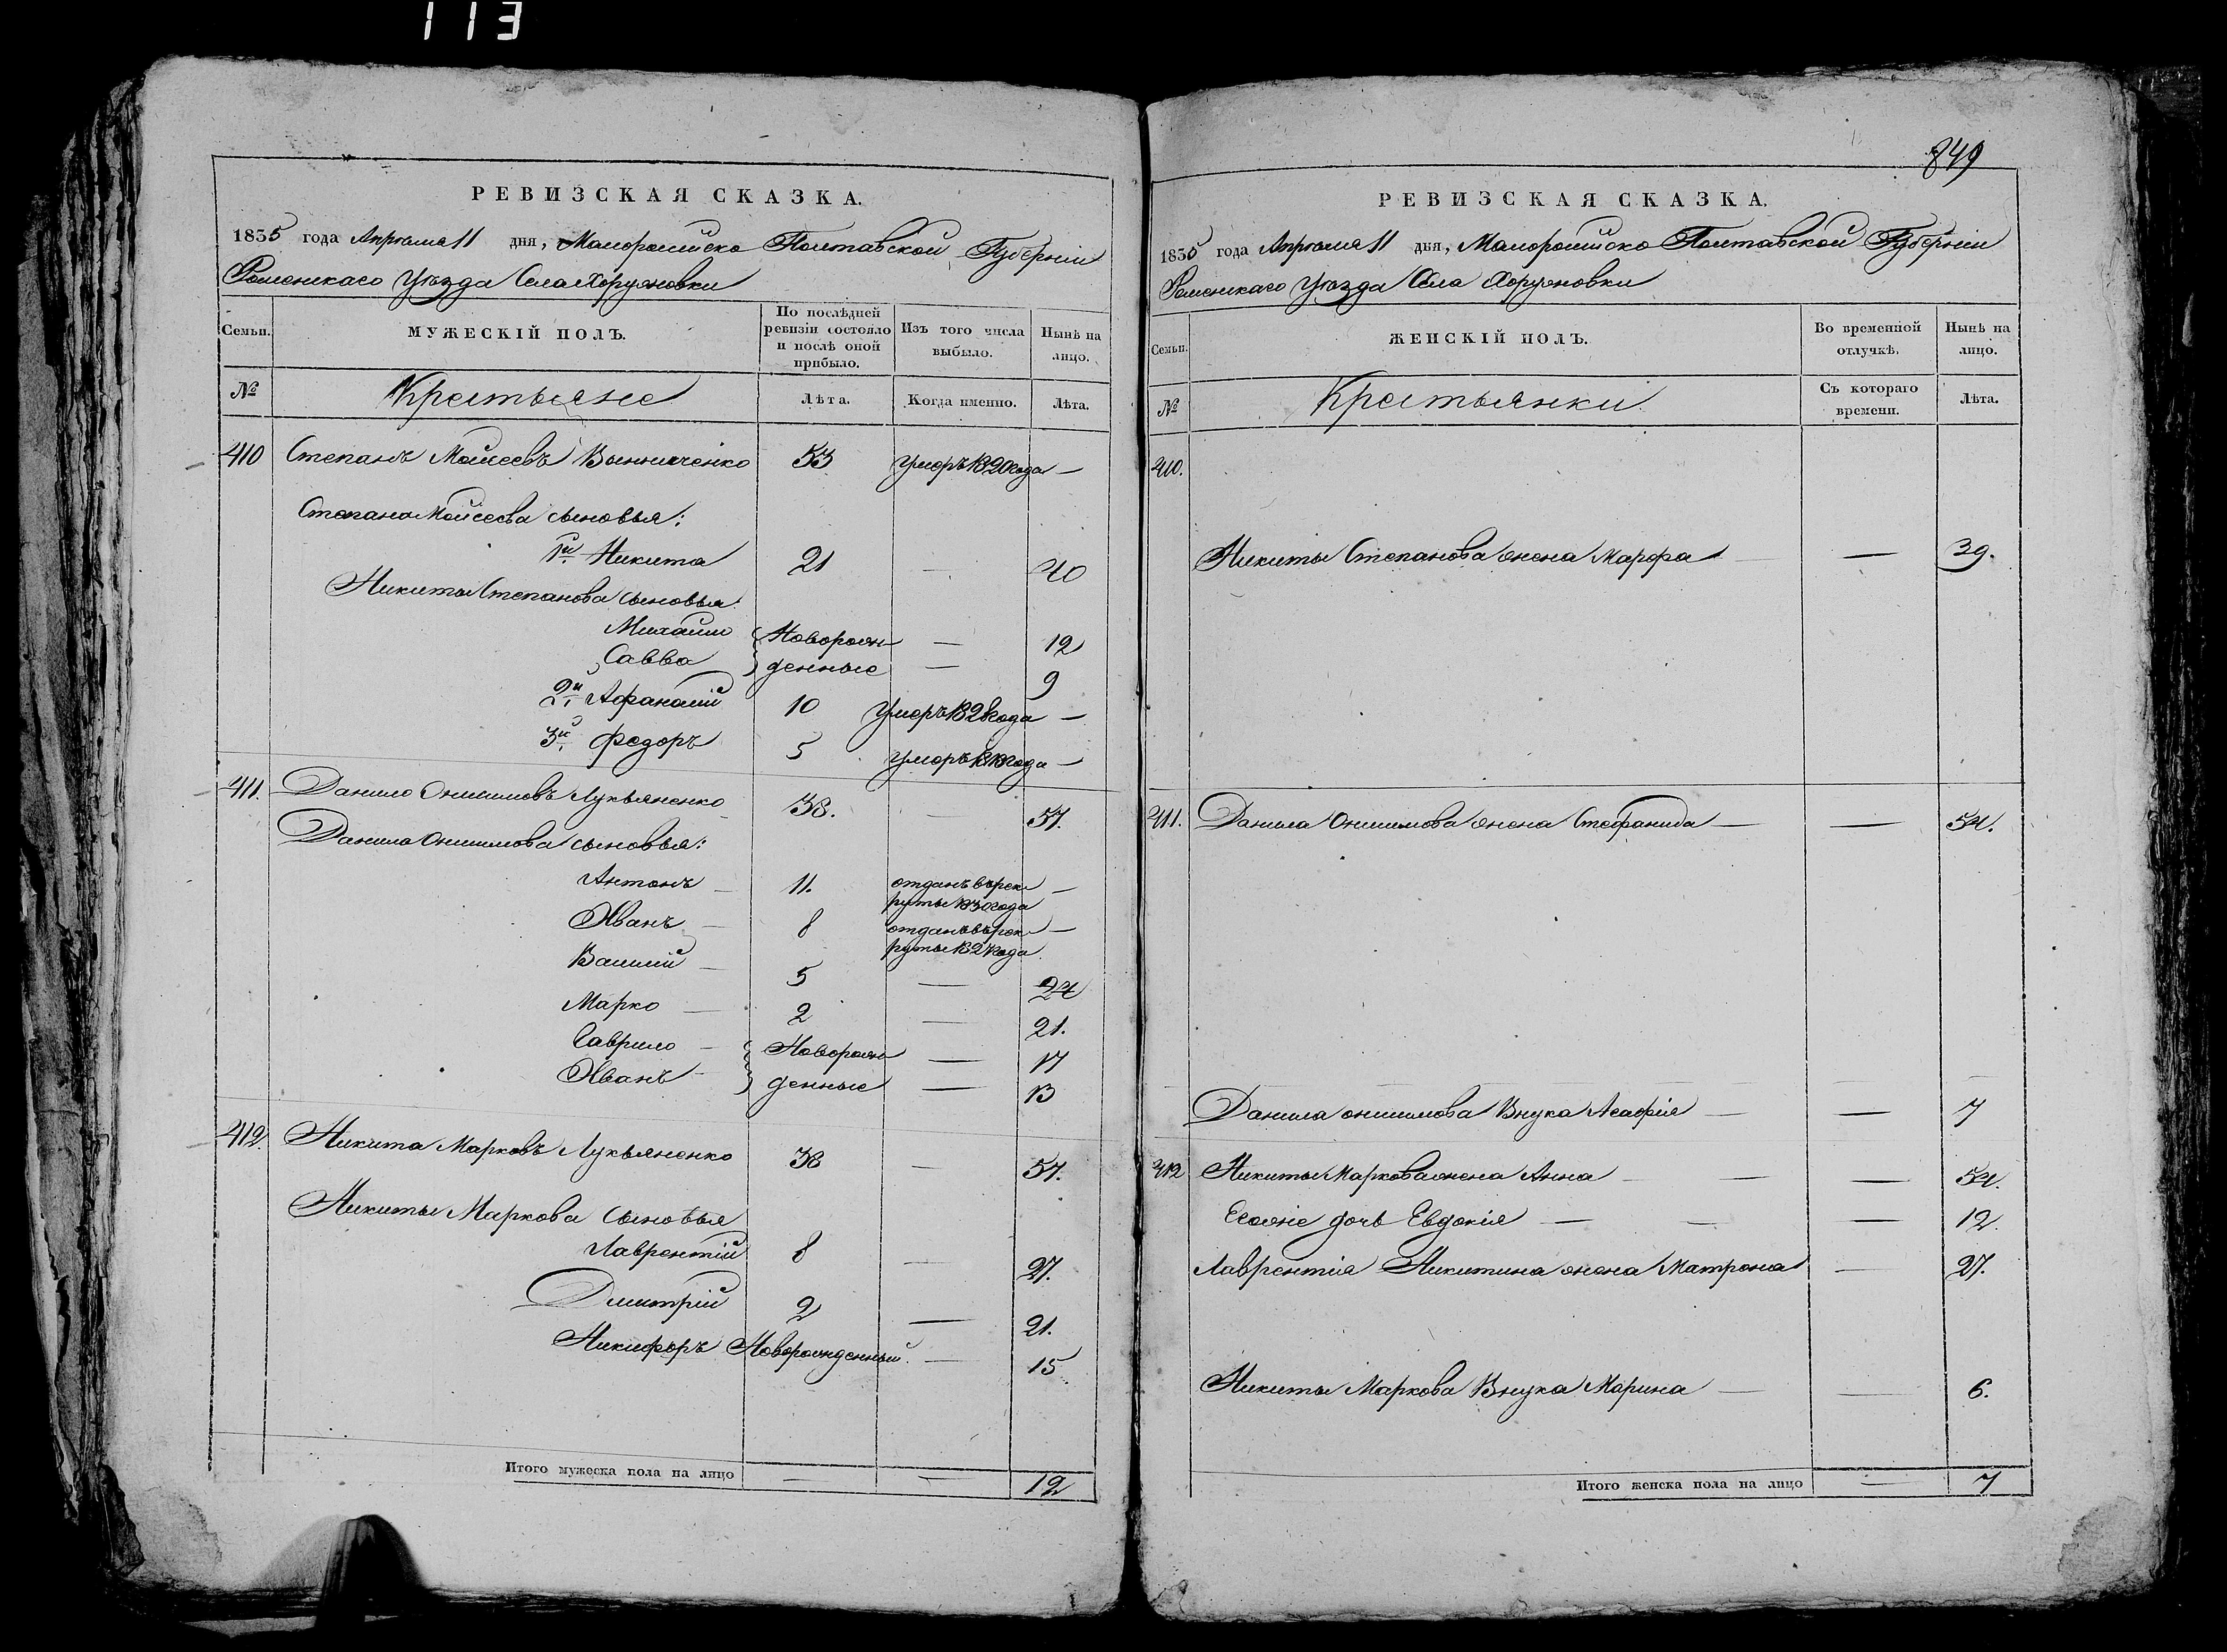 113
РЕВИЗСКАЯ СКАЗКА.
1835 года Апрѣля 11 дня, Малороссійско Полтавской Губерніи
Роменскаго Уѣзда Села Хоружовки
Семьи. МУЖЕСКІЙ ПОЛЪ. По послѣдней ревизіи состояло и послѣ оной прибыло. Изъ того числа выбыло. Нынѣ на лицо.
№ Крестьяне Лѣта. Когда именно. Лѣта.
410 Степанъ Моисеевъ Винниченко 53 умеръ 1820 года —
Степана Моисеева сыновья:
1й Никита 21 — 40
Никиты Степанова сыновья
Михаилъ Новорож- — 12
Савва денные — 9
2й Афанасій 10 умеръ 1828 года —
3й Федоръ 5 умеръ года —
411. Данило Онисимовъ Лукьяненко 38. — 57.
Данила Онисимова сыновья:
Антонъ — 11. отданъ въ рек- —
руты 1830 года
Иванъ — 8 отданъ въ рек- —
руты года
Василій — 5 — 24
Марко — 2 — 21.
Гаврило — Новорож- — 17
Иванъ — денные — 13
412. Никита Марковъ Лукьяненко 38 — 57.
Никиты Маркова сыновья
Лаврентій 8 — 27.
Дмитрій 2 — 21.
Никифоръ Новорожденный. — 15
Итого мужеска пола на лицо — — 12
849
РЕВИЗСКАЯ СКАЗКА.
1835 года Апрѣля 11 дня, Малороссійско Полтавской Губерніи
Роменскаго Уѣзда Села Хоружовки
Семьи. ЖЕНСКІЙ ПОЛЪ. Во временной отлучкѣ. Нынѣ на лицо.
№ Крестьянки. Съ котораго времени. Лѣта.
410.
Никиты Степанова жена Марфа — — 39.
411. Данила Онисимова жена Стефанида — — 54.
Данила Онисимова Внука Агафія — — 7
412 Никиты Маркова жена Анна — — 54.
Егоже дочь Евдокія — — — 12.
Лаврентія Никитина жена Матрона — 27.
Никиты Маркова Внука Марина — — 6.
Итого женска пола на лицо — 7